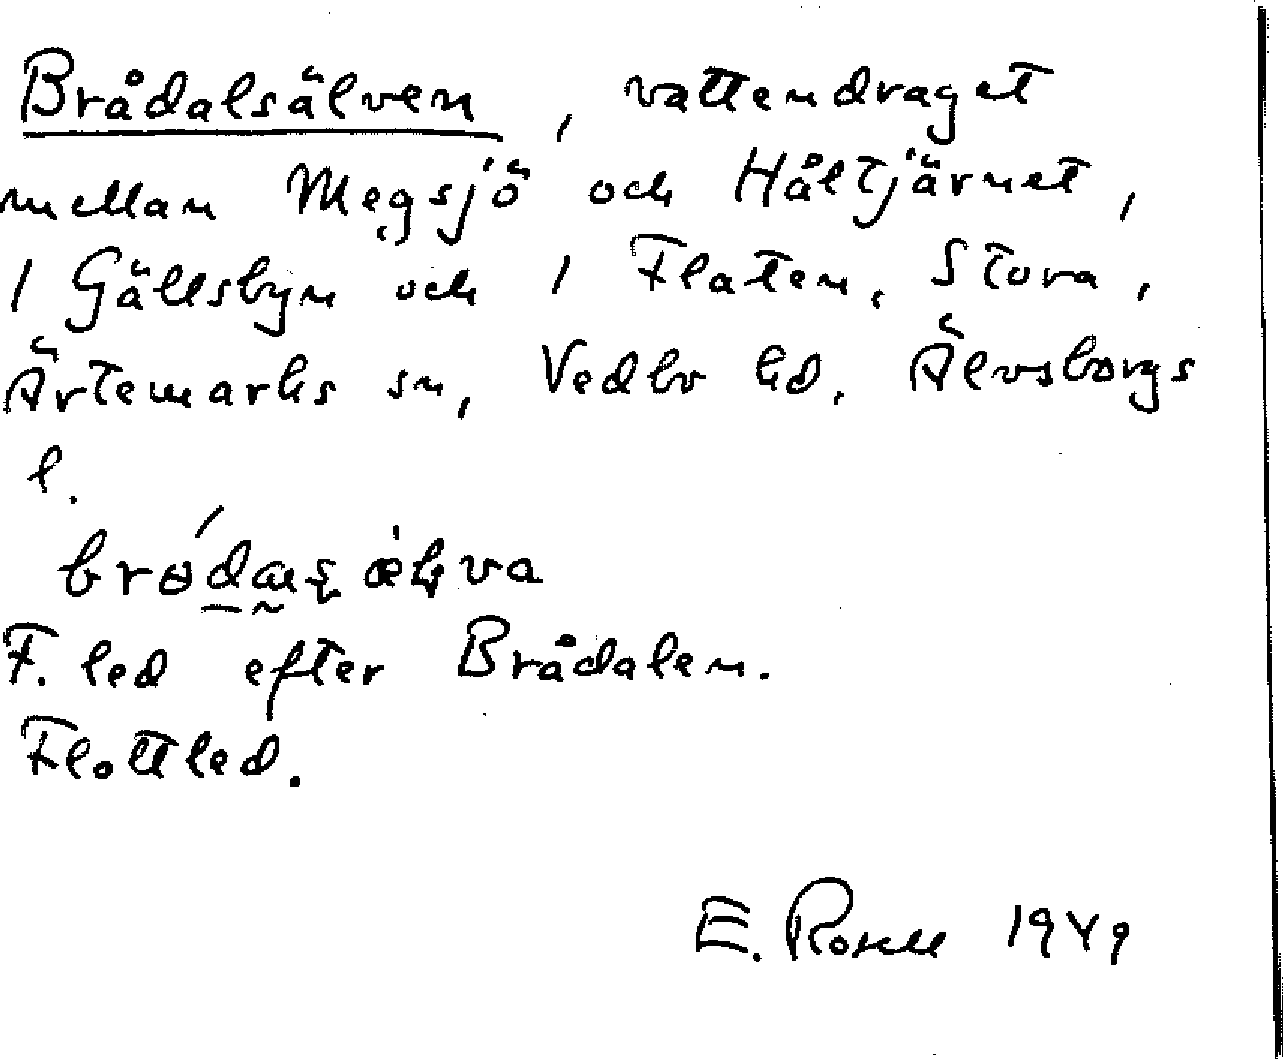 Brådalsälven, vattendraget
mellan Megsjö och Håltjärnet,
1 Gällsbyn och 1 Flaten, Stora,
Ärtemarks sn, Vedbo hd, Älvsborgs
l.
F. led efter Brådalen.
Flottled.
E. Rosell 1949